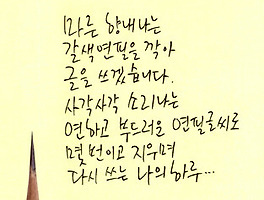 마른 향내나는
갈색연필을 깎아
글을 쓰겠습니다.
사각사각 소리나는
연하고 부드러운 연필글씨로
몇번이고 지우며
다시 쓰는 나의 하루...